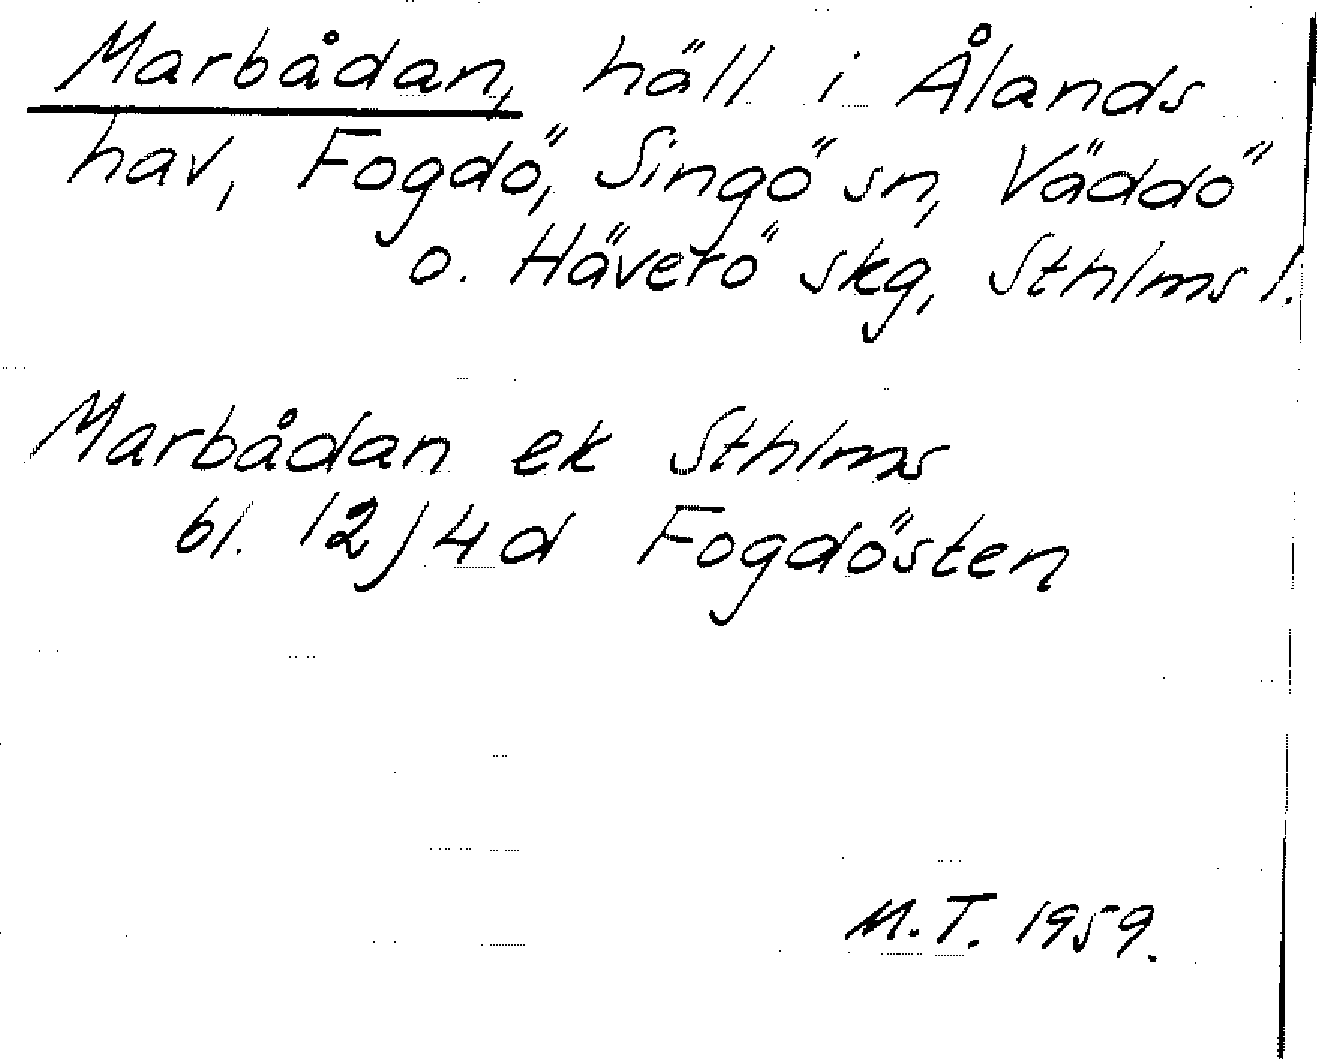 Marbådan, häll i Ålands
hav, Fogdö, Singö sn, Väddö
o. Häverö skg, Sthlms l.
Marbådan ek Sthlms
bl. 12J4d Fogdösten
M.T. 1959.